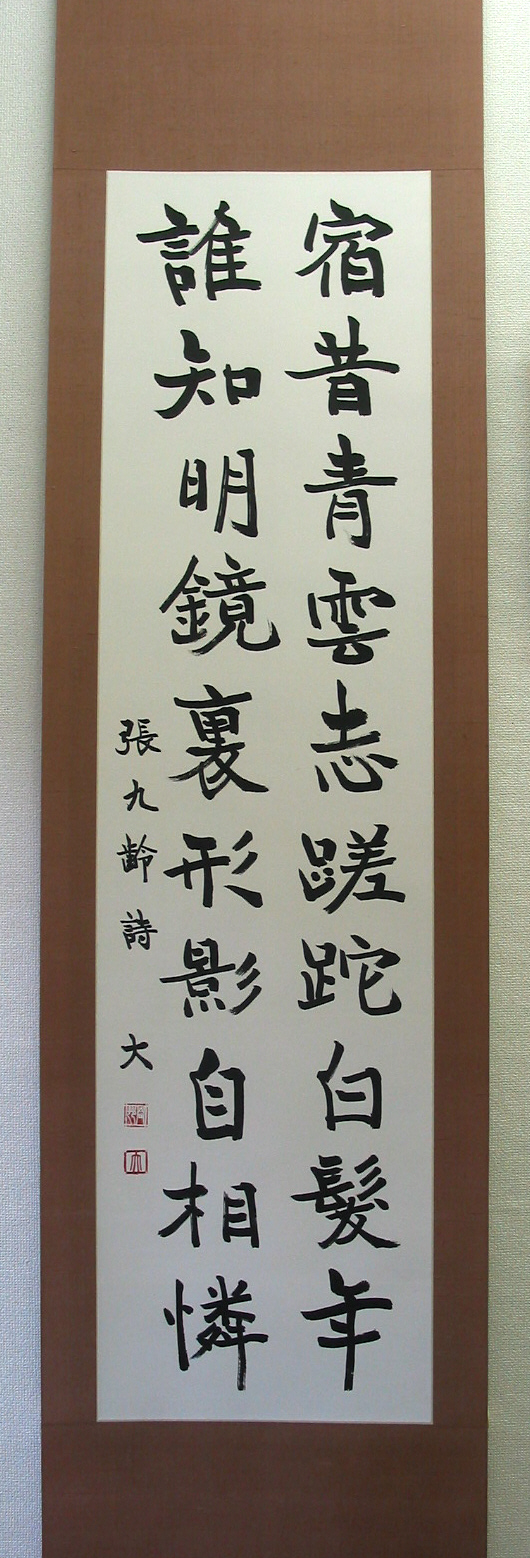 宿昔青雲志蹉跎白髮年
誰知明鏡裏形影自相憐
張九齡詩 大